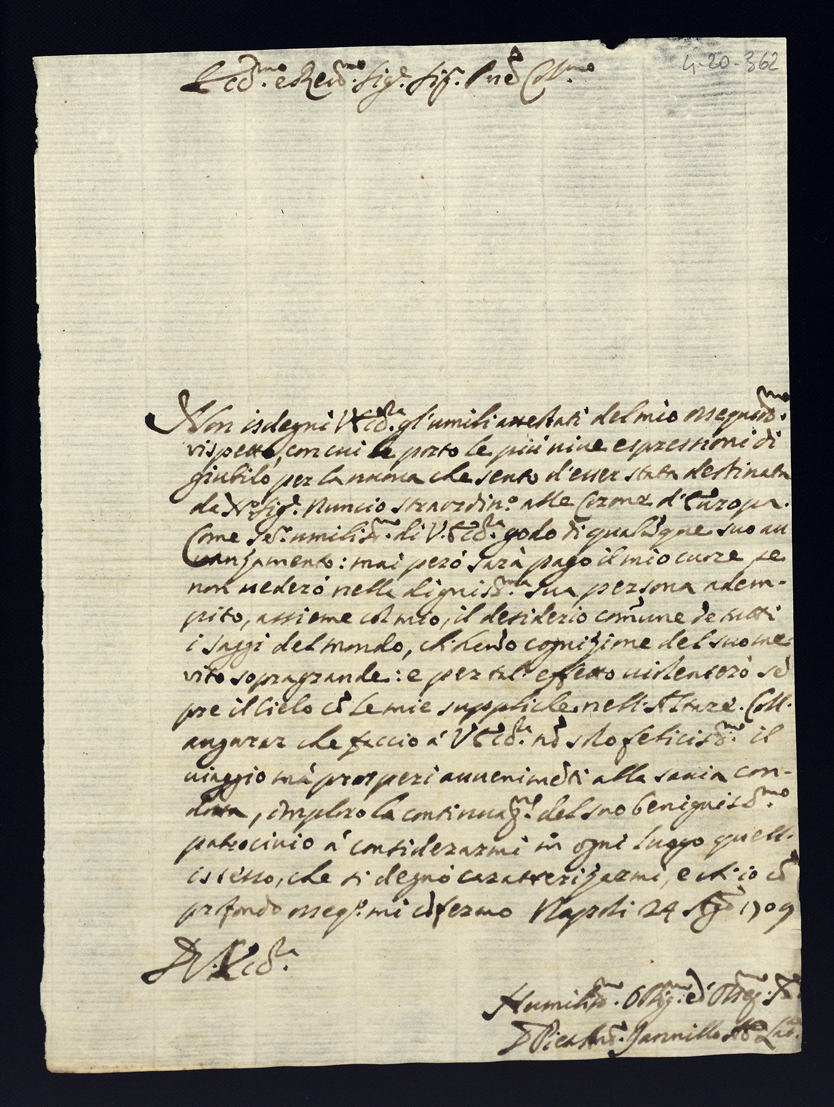 4-20-362
Ecc.mo e Rev.mo Sig.r Sig.r Pne Coll.mo
Non isdegni V. Ecc.za gl'umili attestati del mio ossequios.mo
rispetto, con cui le porto le più vive espressioni di
giubilo per la nuova che sento d'esser stata destinata
da N.ro Sig.re Nuncio straordin.o alle Corone d'Europa.
Come ser. umilis.mo di V. Ecc.za godo di qualsique suo au
uanzamento: mai peró sará pago il mio cuore se
non vederó nella dignis.ma sua persona adem-
pito, assieme col mio, il desiderio comune de tutti
i saggi del mondo, ch'hanno cognizione del suo me
rito sopragrande: e per tal' effetto violenteró sem
pre il Cielo có le mie suppliche nell'Altare. Coll'
augurar che faccio á V. Ecc.za nó solo felicis.mo il
viaggio má prosperi auuenimeti alla savia con-
dotta, imploro la continuaz.e del suo benignis.mo
patrocinio á considerarmi in ogni luogo quell'
istesso, che si degnó caratterizarmi, e ch'io có
profondo osseq.o mi cófermo Napoli 24 Ag.o 1709
D V. Ecc.za
Humilis.mo Oblig.mo ed Osseq.
D Jannillo